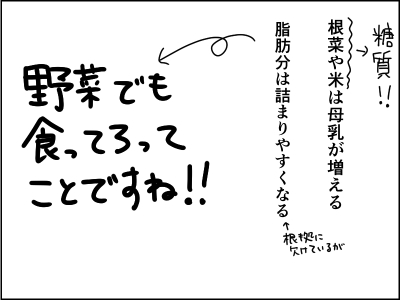 糖質!!
根菜や米は母乳が増える
脂肪分は詰まりやすくなる
根拠に
欠けているが
野菜でも
食ってろって
ことですね!!